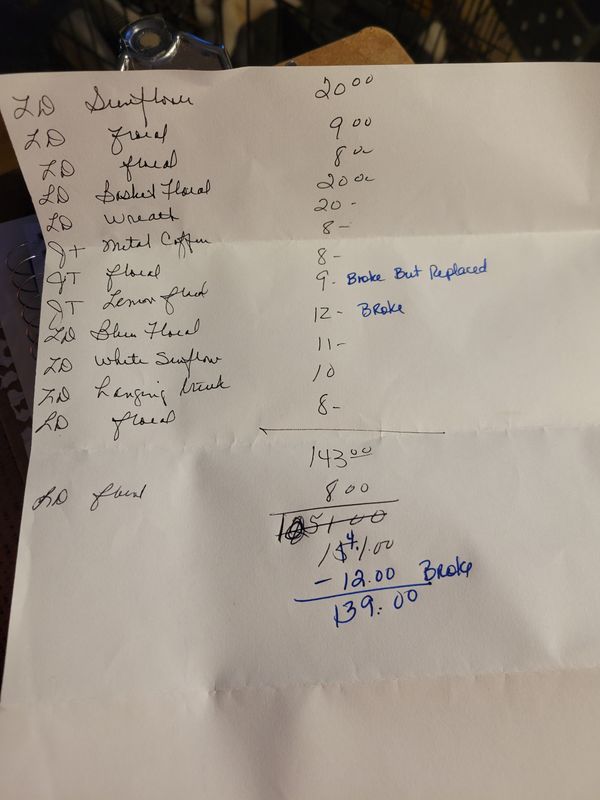 LD Sunflower 20 00
LD floral 9 00
LD floral 8 00
LD Basket Floral 20 00
LD Wreath 20 -
JT Metal Coffee 8 -
JT floral 8 -
JT Lemon 9 - Broke But Replaced
LD Blue Floral 12 - Broke
LD White Sunflow 11 -
LD hanging 10
LD floral 8 -
143 00
LD floral 8 00
151 00
151.00
- 12.00 Broke
139.00